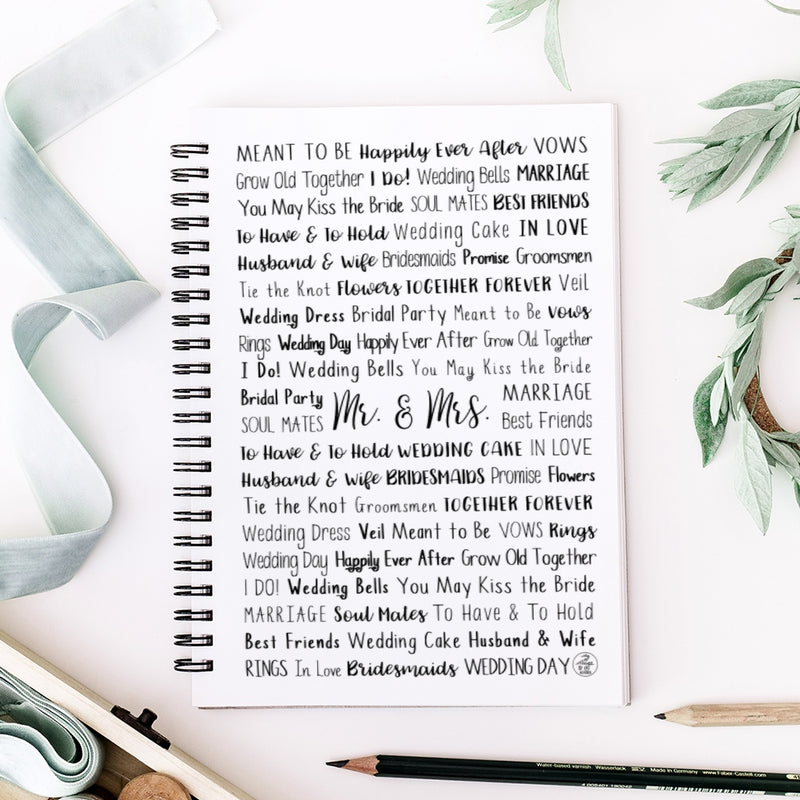 MEANT TO BE Happily Ever After VOWS
Grow Old Together I Do! Wedding Bells MARRIAGE
You May Kiss the Bride SOUL MATES BEST FRIENDS
To Have & To Hold Wedding Cake IN LOVE
Husband & Wife Bridesmaids Promise Groomsmen
Tie the Knot Flowers TOGETHER FOREVER Veil
Wedding Dress Bridal Party Meant to Be vows
Rings Wedding Day Happily Ever After Grow Old Together
I Do! Wedding Bells You May Kiss the Bride
Bridal Party Mr. & Mrs. MARRIAGE
SOUL MATES Best Friends
To Have & To Hold WEDDING CAKE IN LOVE
Husband & Wife BRIDESMAIDS Promise Flowers
Tie the Knot Groomsmen TOGETHER FOREVER
Wedding Dress Veil Meant to Be VOWS Rings
Wedding Day Happily Ever After Grow Old Together
I DO! Wedding Bells You May Kiss the Bride
MARRIAGE Soul Mates To Have & To Hold
Best Friends Wedding Cake Husband & Wife
RINGS In Love Bridesmaids WEDDING DAY
Water-based varnish Wasserlack Made in Germany www.Faber-Castell.com